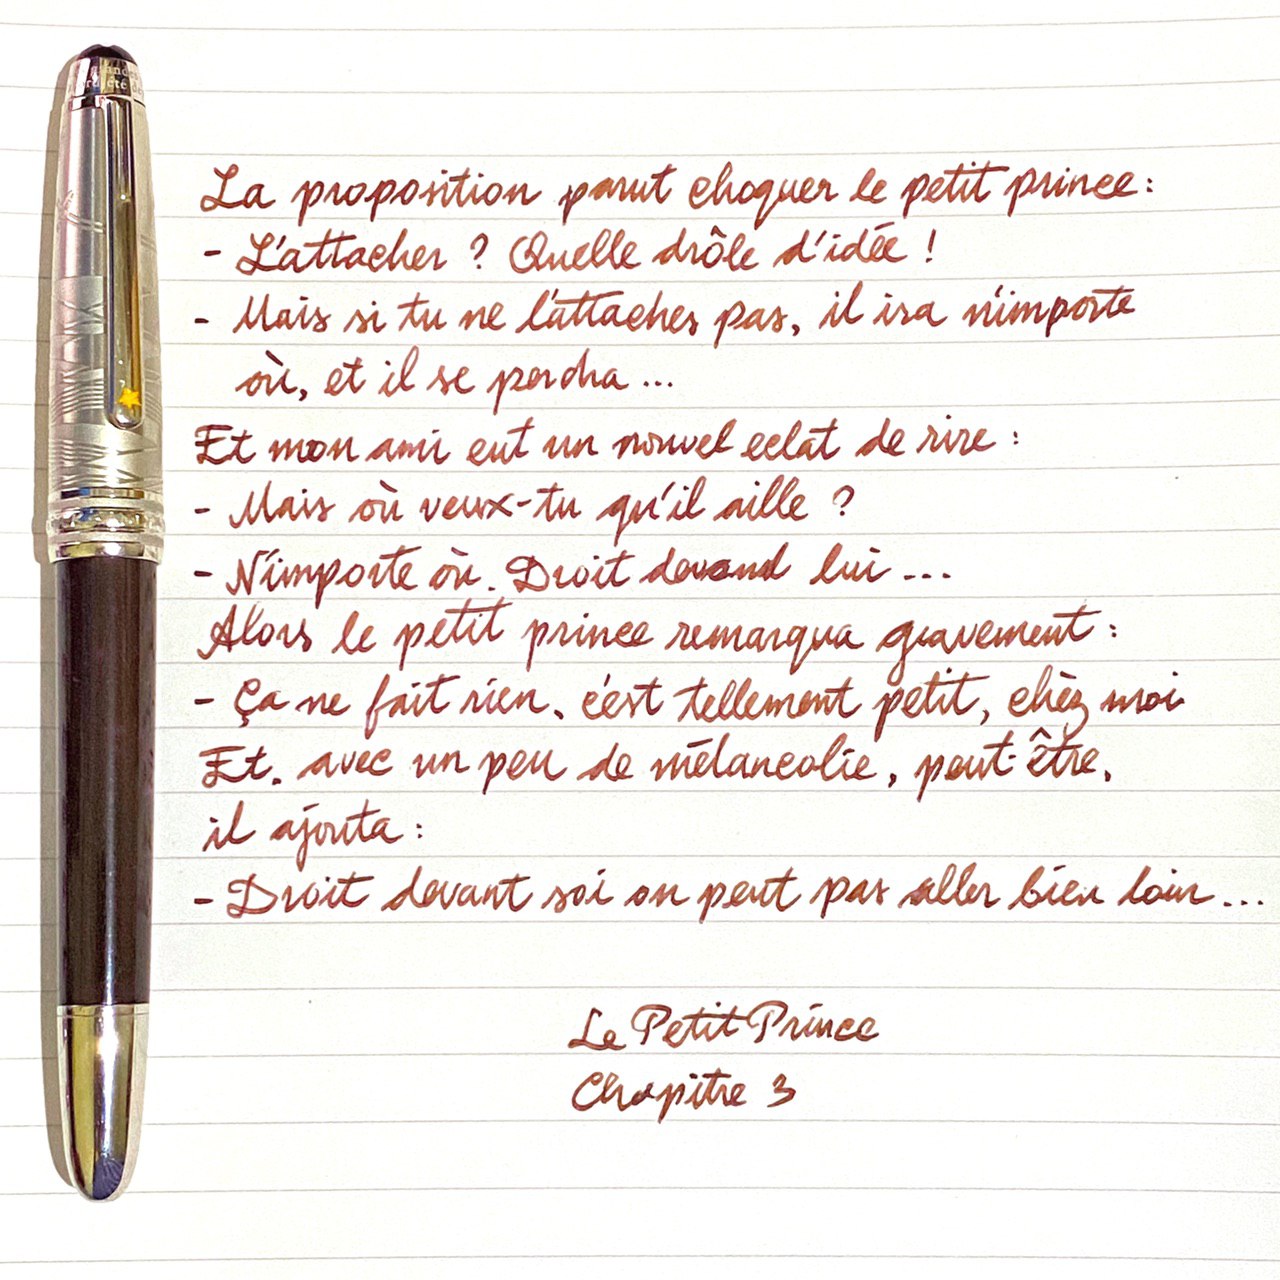 grande
été de
La proposition parut choquer le petit prince :
- L'attacher ? Quelle drôle d'idée !
- Mais si tu ne l'attaches pas, il ira n'importe
où, et il se perdra ...
Et mon ami eut un nouvel eclat de rire :
- Mais où veux-tu qu'il aille ?
- N'importe où. Droit devand lui ...
Alors le petit prince remarqua gravement :
- Ça ne fait rien, c'est tellement petit, chèz moi
Et, avec un peu de mélancolie, peut-être,
il ajouta :
- Droit devant soi on peut pas aller bien loin ...
Le Petit Prince
Chapitre 3